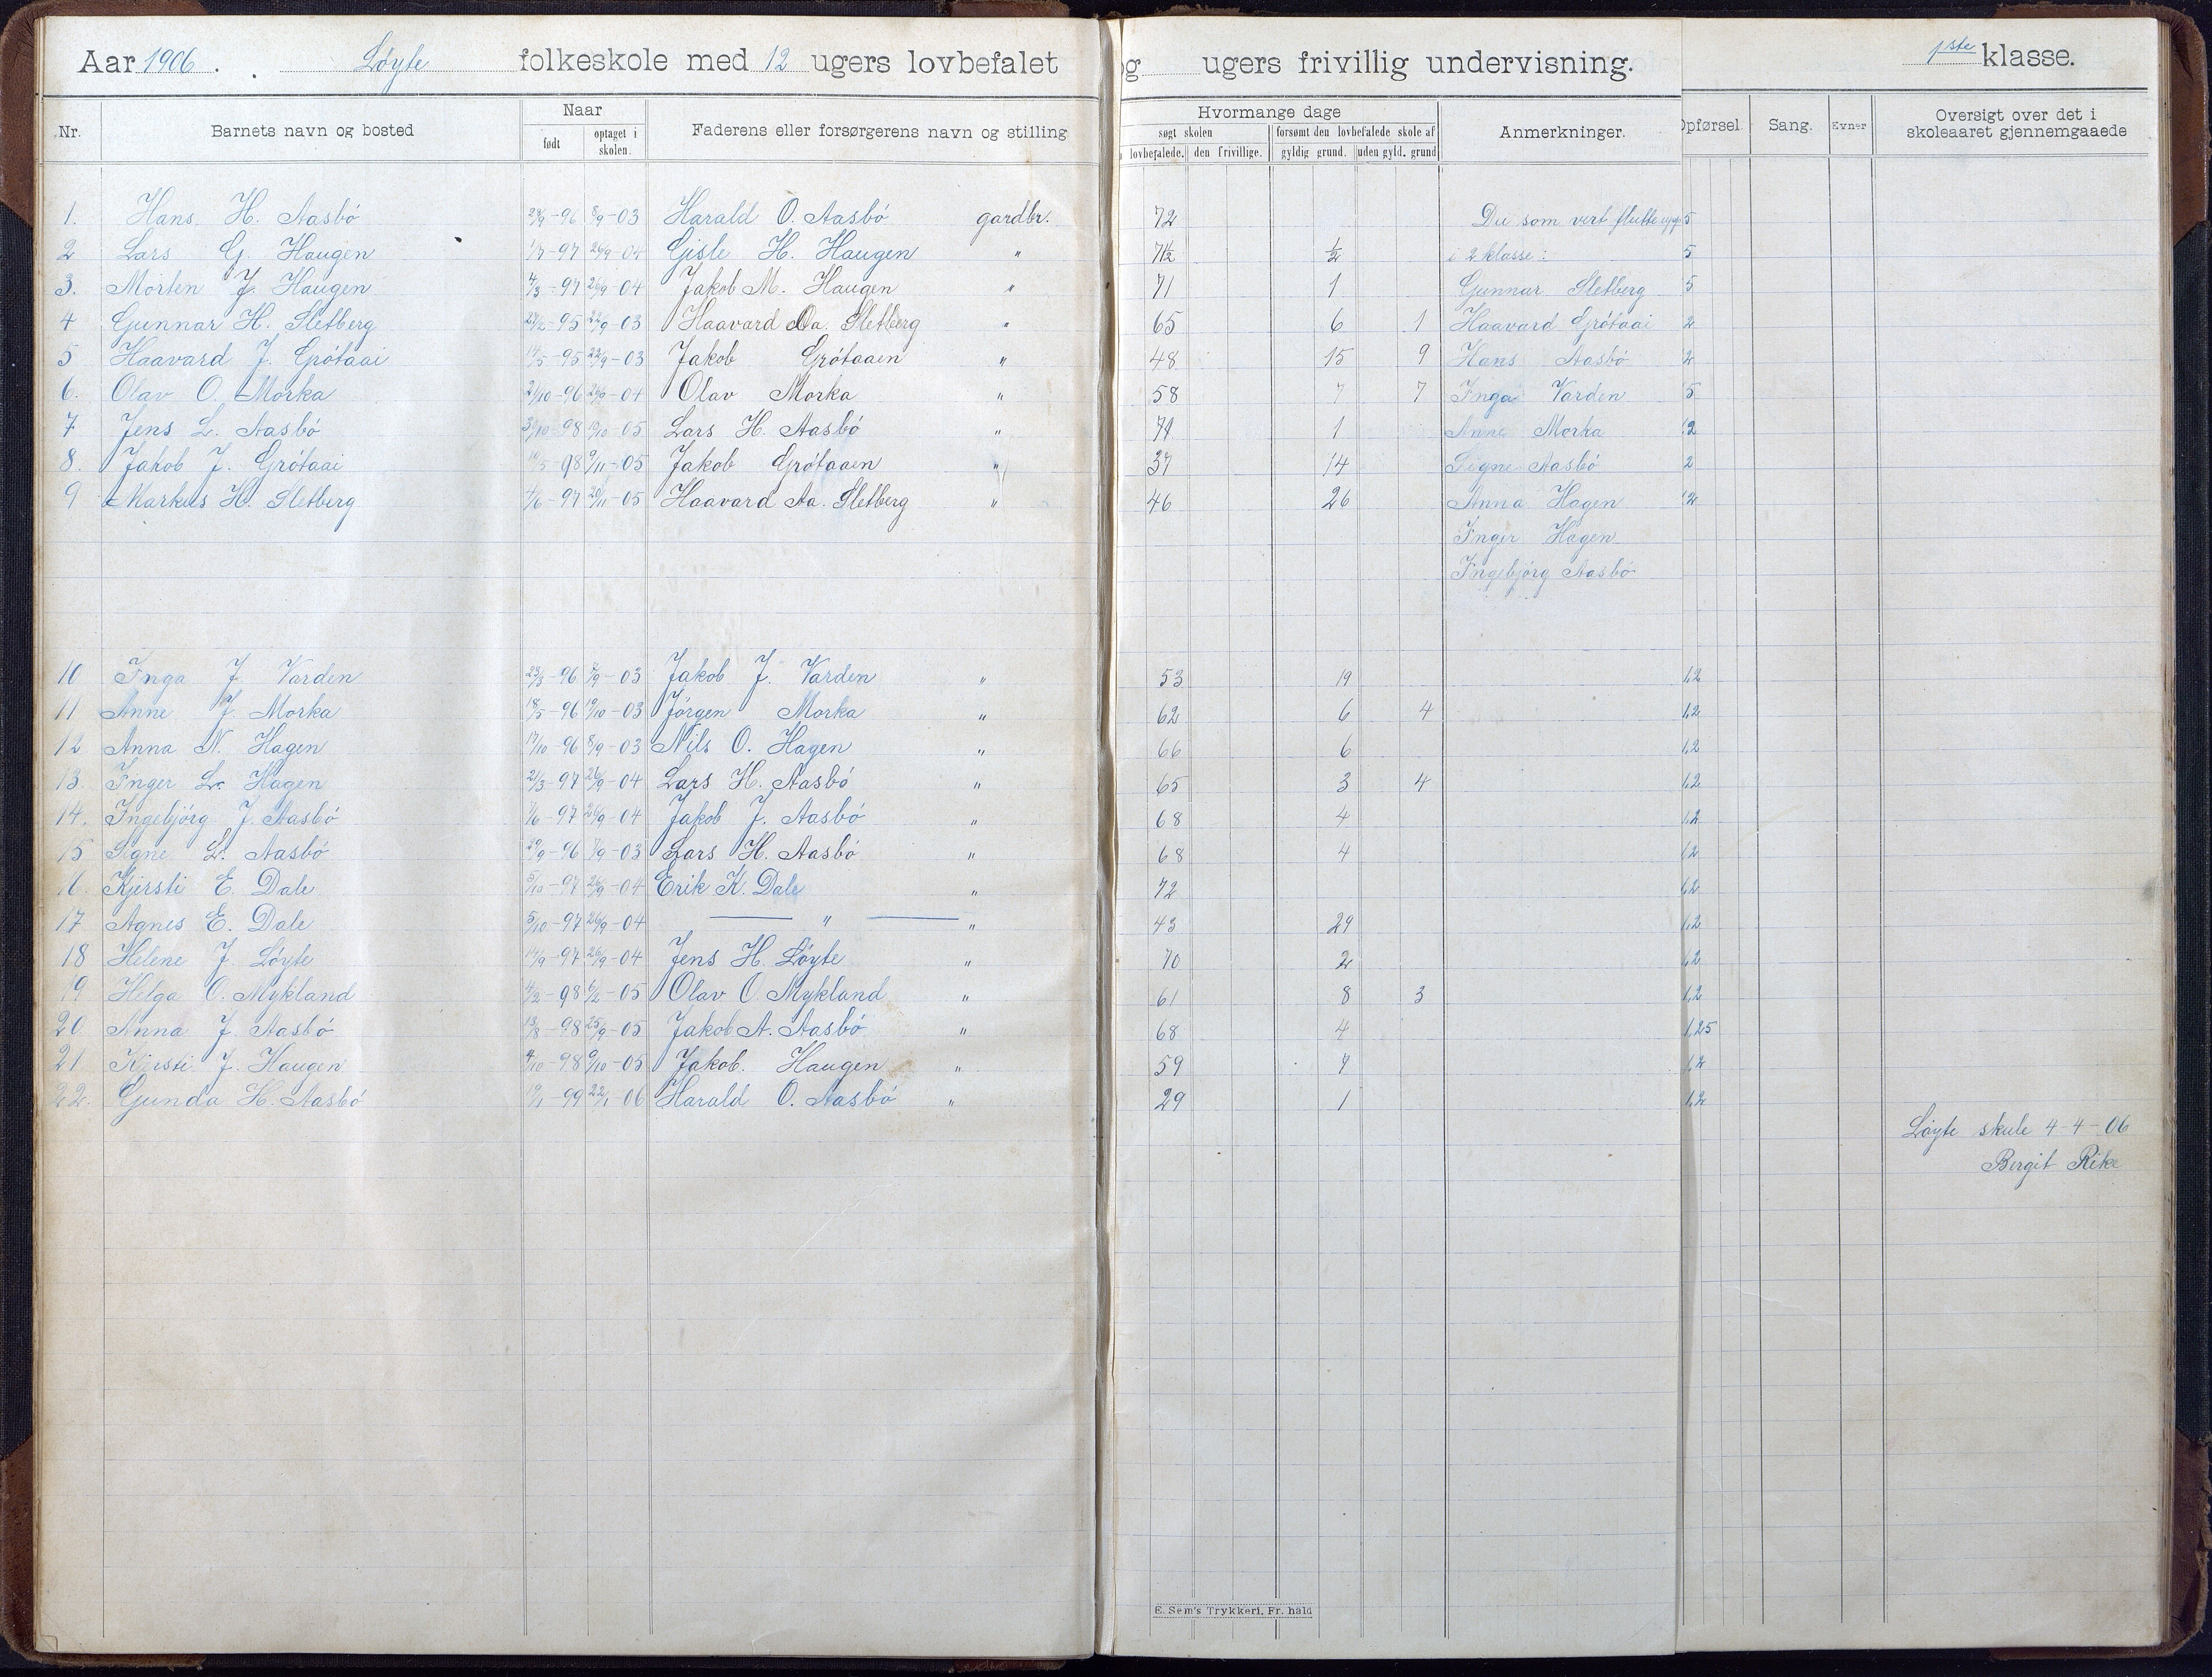 Aar 1906. Løyte folkeskole med 12 ugers lovbefalet og ugers frivillig undervisning. 1ste klasse.
Nr. Barnets navn og bosted Naar født optaget i skolen. Faderens eller forsørgerens navn og stilling Hvormange dage søgt skolen lovbefalede. den frivillige. forsømt den lovbefalede skole af gyldig grund. uden gyld. grund Anmerkninger. Opførsel. Sang. Evner Oversigt over det i skoleaaret gjennemgaaede
1. Hans H. Aasbö 96 8/9-03 Harald O. Aasbö gardbr. 72 Du som vert flutte upp 5
2 Lars G. Haugen 1/7-97 26/9 04 Gisle H. Haugen " 71½ ½ i 2 klasse: 5
3. Morten J. Haugen 4/3-97 26/9-04 Jakob M. Haugen " 71 1 Gunnar Sletberg 5
4 Gunnar H. Sletberg 95 22/9 03 Haavard Aa. Sletberg " 65 6 1 Haavard Grótaai 2
5 Haavard J. Grótaai 14/5-95 22/9-03 Jakob Grótaaen " 48 15 9 Hans Aasbö 2
6. Olav O. Morka 2/10-96 26/9-04 Olav Morka " 58 7 7 Inga Varden 5
7 Jens L. Aasbö 98 05 Lars H. Aasbö " 71 1 Anne Morka 12
8. Jakob J. Grótaai 98 9/11-05 Jakob Grótaaen " 37 14 Signe Aasbö 2
9 Markus H. Sletberg 4/6-97 20/11-05 Haavard Aa. Sletberg " 46 26 Anna Hagen 12
Inger Hagen
Ingebjörg Aasbö
10 Inga J. Varden 23/3-96 03 Jakob J. Varden " 53 19 1,2
11 Anne J. Morka 18/5-96 19/10-03 Jörgen Morka " 62 6 4 1,2
12 Anna N. Hagen 17/10-96 8/9-03 Nils O. Hagen " 66 6 1,2
13. Inger L. Hagen 2/3-97 26/9-04 Lars H. Aasbö " 65 3 4 1,2
14. Ingebjörg J. Aasbö 1/6-97 26/9-04 Jakob J. Aasbö " 68 4 1,2
15 Signe L. Aasbö 29/9-96 7/9-03 Lars H. Aasbö " 68 4 1,2
16. Kjersti E. Dale 5/10-97 26/9-04 Erik K. Dale " 72 1,2
17 Agnes E. Dale 5/10-97 26/9-04 — " — " 43 29 1,2
18 Helene J. Løyte 14/9-97 26/9-04 Jens H. Løyte " 70 2 1,2
19 Helga O. Mykland 4/2-98 6/2-05 Olav O. Mykland " 61 8 3 1,2
20 Anna J. Aasbö 13/8-98 25/9-05 Jakob A. Aasbö " 68 4 1,25
21 Kjersti J. Haugen 4/10-98 9/10-05 Jakob. Haugen " 59 7 1,2
22. Gunda H. Aasbö 99 22/1 06 Harald O. Aasbö " 29 1 1,2
Løyte skule 4-4-06
Bergit Rike
E. Sem's Trykkeri, Fr. hald